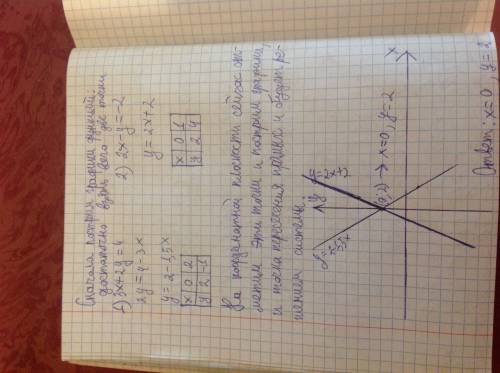 Сначала построим графики функций:
достаточно взять всего две точки
1) 3x+2y=4 2) 2x-y=-2
2y=4-3x y=2x+2
y=2-1,5x
x 0 2 x 0 1
y 2 -1 y 2 4
На координатной плоскости сейчас от-
метим эти точки и построим графики,
и точка пересечения прямых и будет ре-
шением системы.
y y=2x+2
y=2-1,5x
(0;2) → x=0, y=2
x
Ответ: x=0 y=2